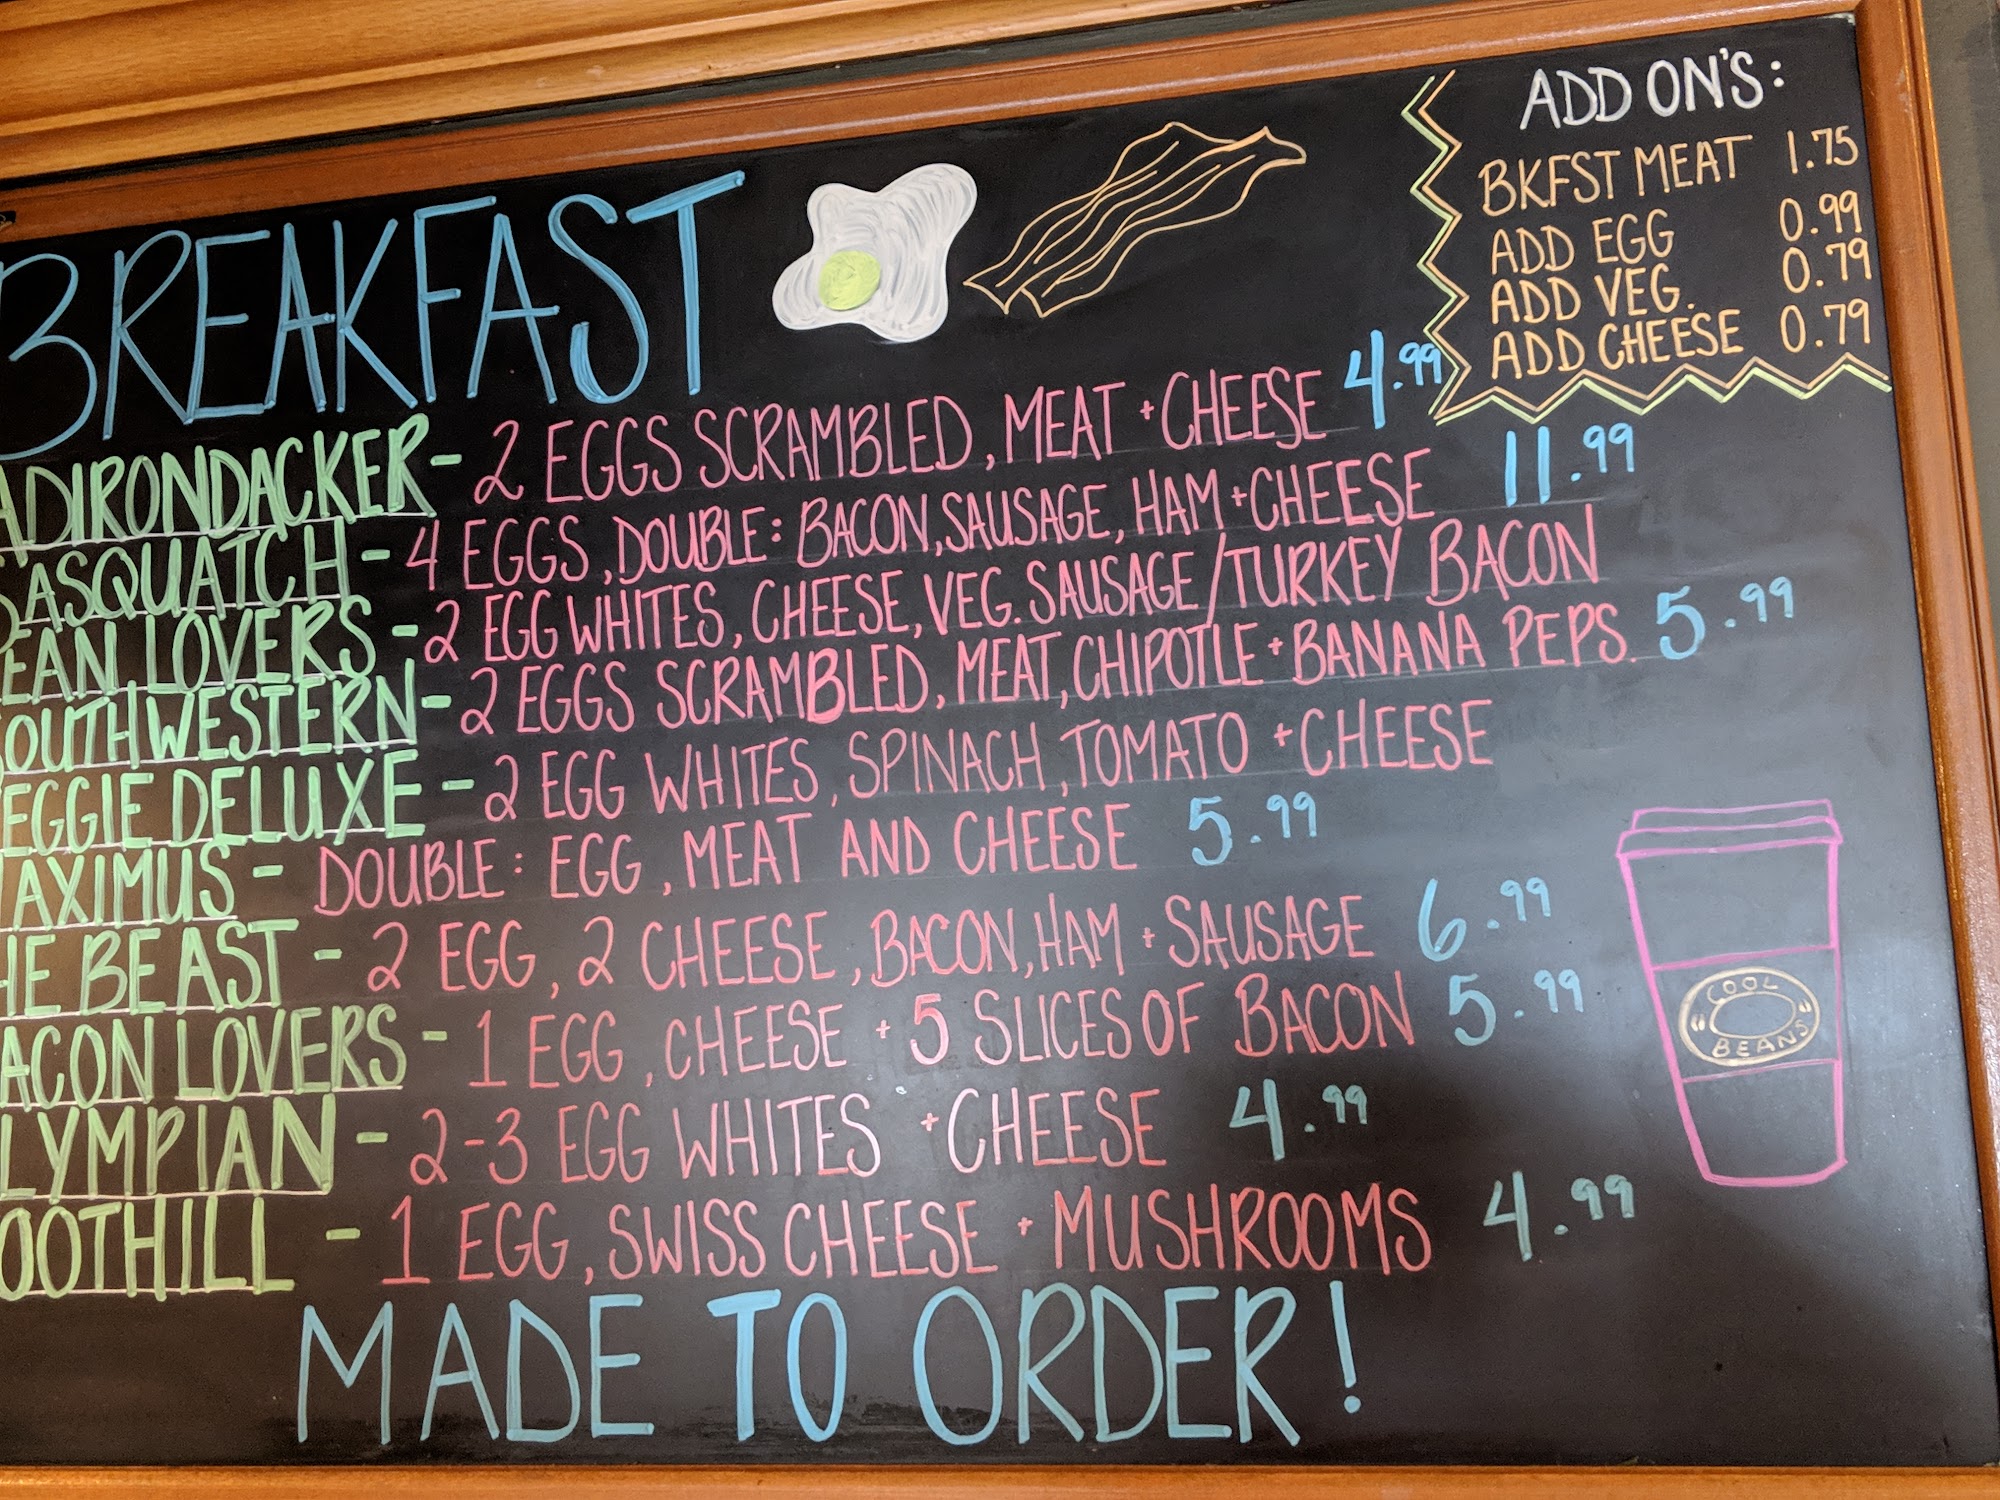 BREAKFAST
ADD ON'S:
BKFST MEAT 1.75
ADD EGG 0.99
ADD VEG. 0.79
ADD CHEESE 0.79
ADIRONDACKER - 2 EGGS SCRAMBLED, MEAT + CHEESE 4.99
SASQUATCH - 4 EGGS, DOUBLE: BACON, SAUSAGE, HAM + CHEESE 11.99
EAN LOVERS - 2 EGG WHITES, CHEESE, VEG. SAUSAGE/TURKEY BACON
SOUTHWESTERN - 2 EGGS SCRAMBLED, MEAT, CHIPOTLE + BANANA PEPS. 5.99
EGGIE DELUXE - 2 EGG WHITES, SPINACH, TOMATO + CHEESE
AXIMUS - DOUBLE: EGG, MEAT AND CHEESE 5.99
HE BEAST - 2 EGG, 2 CHEESE, BACON, HAM + SAUSAGE 6.99
ACON LOVERS - 1 EGG, CHEESE + 5 SLICES OF BACON 5.99
LYMPIAN - 2-3 EGG WHITES + CHEESE 4.99
OOTHILL - 1 EGG, SWISS CHEESE + MUSHROOMS 4.99
COOL
BEANS
MADE TO ORDER!